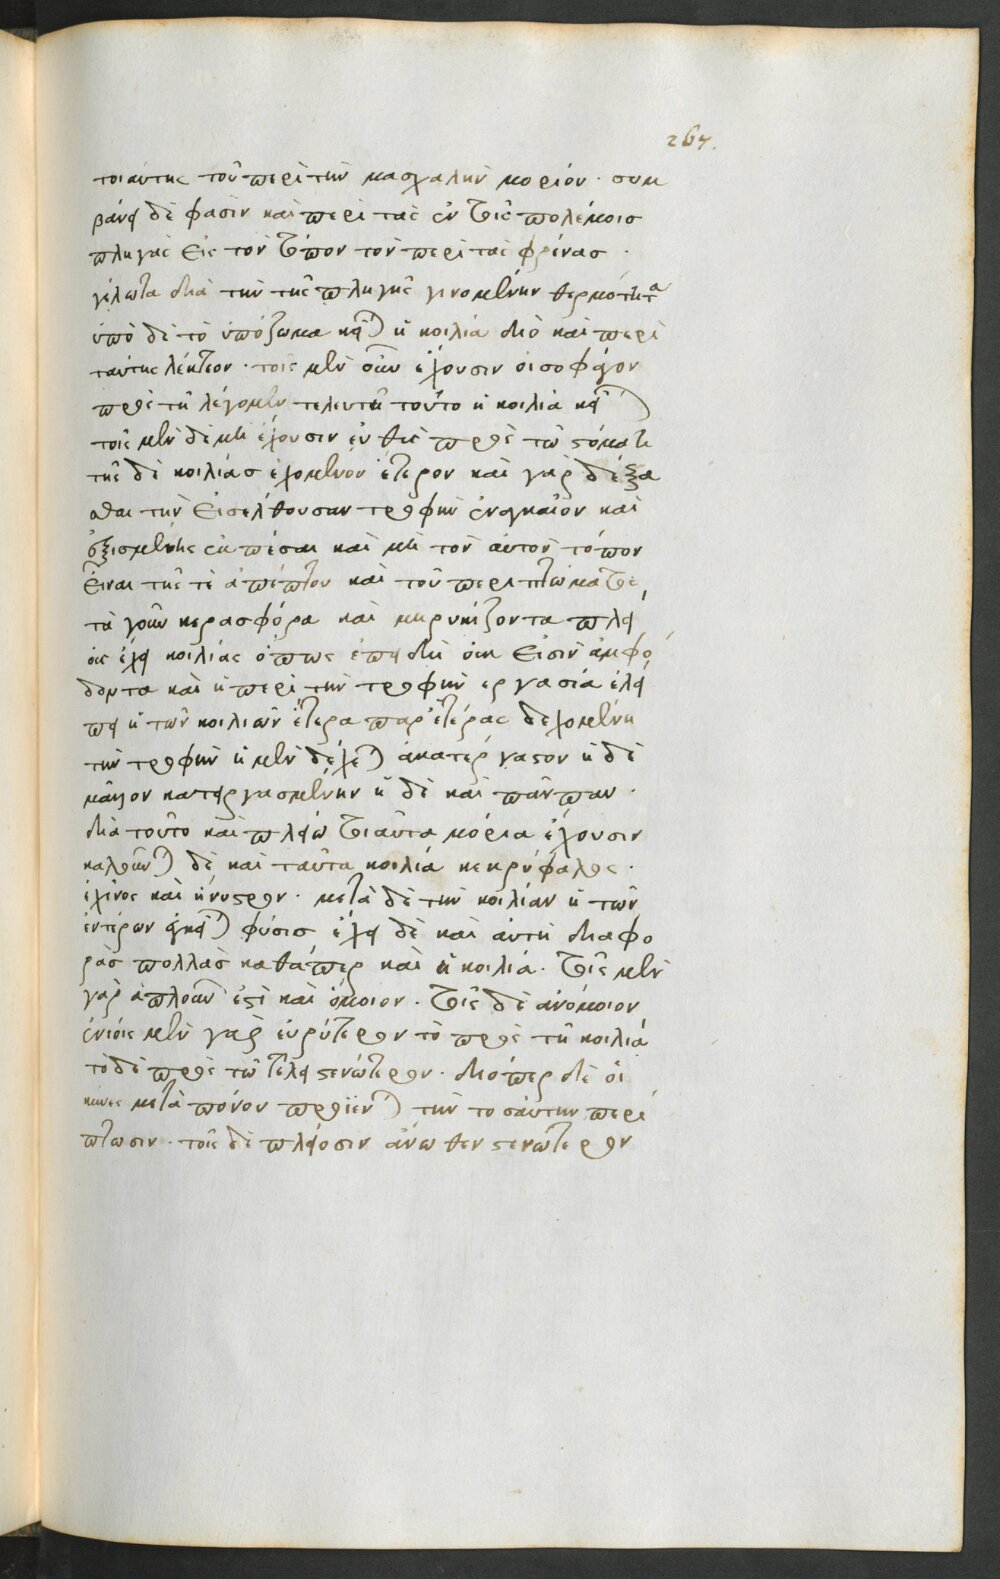 267.
τοιαύτης τοῦ περὶ τὴν μασχαλὴν μορίον· συμ
βάνει δέ φασὶν καὶ περὶ τὰς ἐν τοῖς πολέμοισ
πληγὰς εἰς τὸν τόπον τὸν περὶ τὰς φρένασ·
γέλωτα διὰ τὴν τῆς πληγῆς γινομένην θερμότητα
ὑπὸ δὲ τὸ ὑπόζωμα κεῖται ἡ κοιλία διὸ καὶ περὶ
ταύτης λέκτεον· τοῖς μὲν οὖν ἔχουσιν οἰσοφάγον
πρὸς τῆ λέγομεν τελευτῆ τοῦτο ἡ κοιλιὰ κεῖται
τοῖς μὲν δὲ μὴ ἔχουσιν εὐθὺς πρὸς τῶ στόματι
τῆς δὲ κοιλίασ ἐχόμενον ἕτερον καὶ γὰρ δέξα
σθαι τὴν εἰσελθουσαν τροφὴν ἀναγκαῖον καὶ
ἐξισμένης ἐκπέσαι καὶ μὴ τὸν αὐτὸν τόπον
εἶναι τῆς τὲ ἀπέπτου καὶ τοῦ περιπτώματος
τὰ γοῦν κερασφόρα καὶ μηρυκίζοντα πλεί
ους ἔχει κοιλίας ὅπως ἐπειδὴ οὐκ εἰσὶν ἀμφό
δοντα καὶ ἡ περὶ τὴν τροφὴν εργασία ἐλεί
πει ἡ τῶν κοιλιῶν ἑτέρα παρ' ἑτέρας δεχομένη
τὴν τροφὴν ἡ μὲν δέχεται ἀκατέργαστον ἡ δὲ
μᾶλλον κατειργασμένην ἡ δὲ καὶ πάνπαν·
διὰ τοῦτο καὶ πλείω τοιαῦτα μόρια ἔχουσιν
καλοῦνται δὲ καὶ ταῦτα κοιλία κεκρύφαλος·
ἐχῖνος καὶ ἤνυστρον· μετὰ δὲ τὴν κοιλίαν ἡ τῶν
ἐντέρων ἔγκειται φύσισ ἔχει δὲ καὶ αὐτὴ διαφο
ρὰσ πολλὰσ καθάπερ καὶ ἡ κοιλιά. τοῖς μὲν
γὰρ ἁπλοῦν ἐστὶ καὶ ὅμοιον. τοῖς δὲ ἀνόμοιον
ἐνίοις μὲν γὰρ εὐρύτερον τὸ πρὸς τῆ κοιλιά
τὸ δὲ πρὸς τῶ τέλει στενώτερον· διόπερ δὲ οἱ
κύνες μετὰ πόνον προΐενται τὴν τοσαύτην περί
πτωσιν· τοῖς δὲ πλείοσιν ἄνωθεν στενώτερον